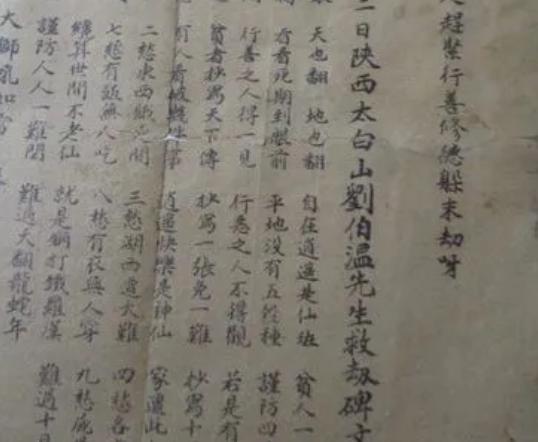 趕緊行善修德躲末劫呀
二日陝西太白山劉伯温先生救劫碑文
天也翻 地也翻 自在逍遥是仙班 貧人一
看看死期到眼前 平地没有五谷種 謹防四
行善之人得一見 行惡之人不得觀 若是有
貧者抄寫天下傳 抄寫一張免一難 抄寫十
有人看破 逍遥快樂是神仙 家遭此
二愁東西餓死間 三愁湖西遭大難 四愁各
七愁有飯無人吃 八愁有衣無人穿 九愁
纔算世間不老仙 就是銅打鐵羅漢 難過十
謹防人人一難間 難過天翻龍蛇年
大獅吼如雷